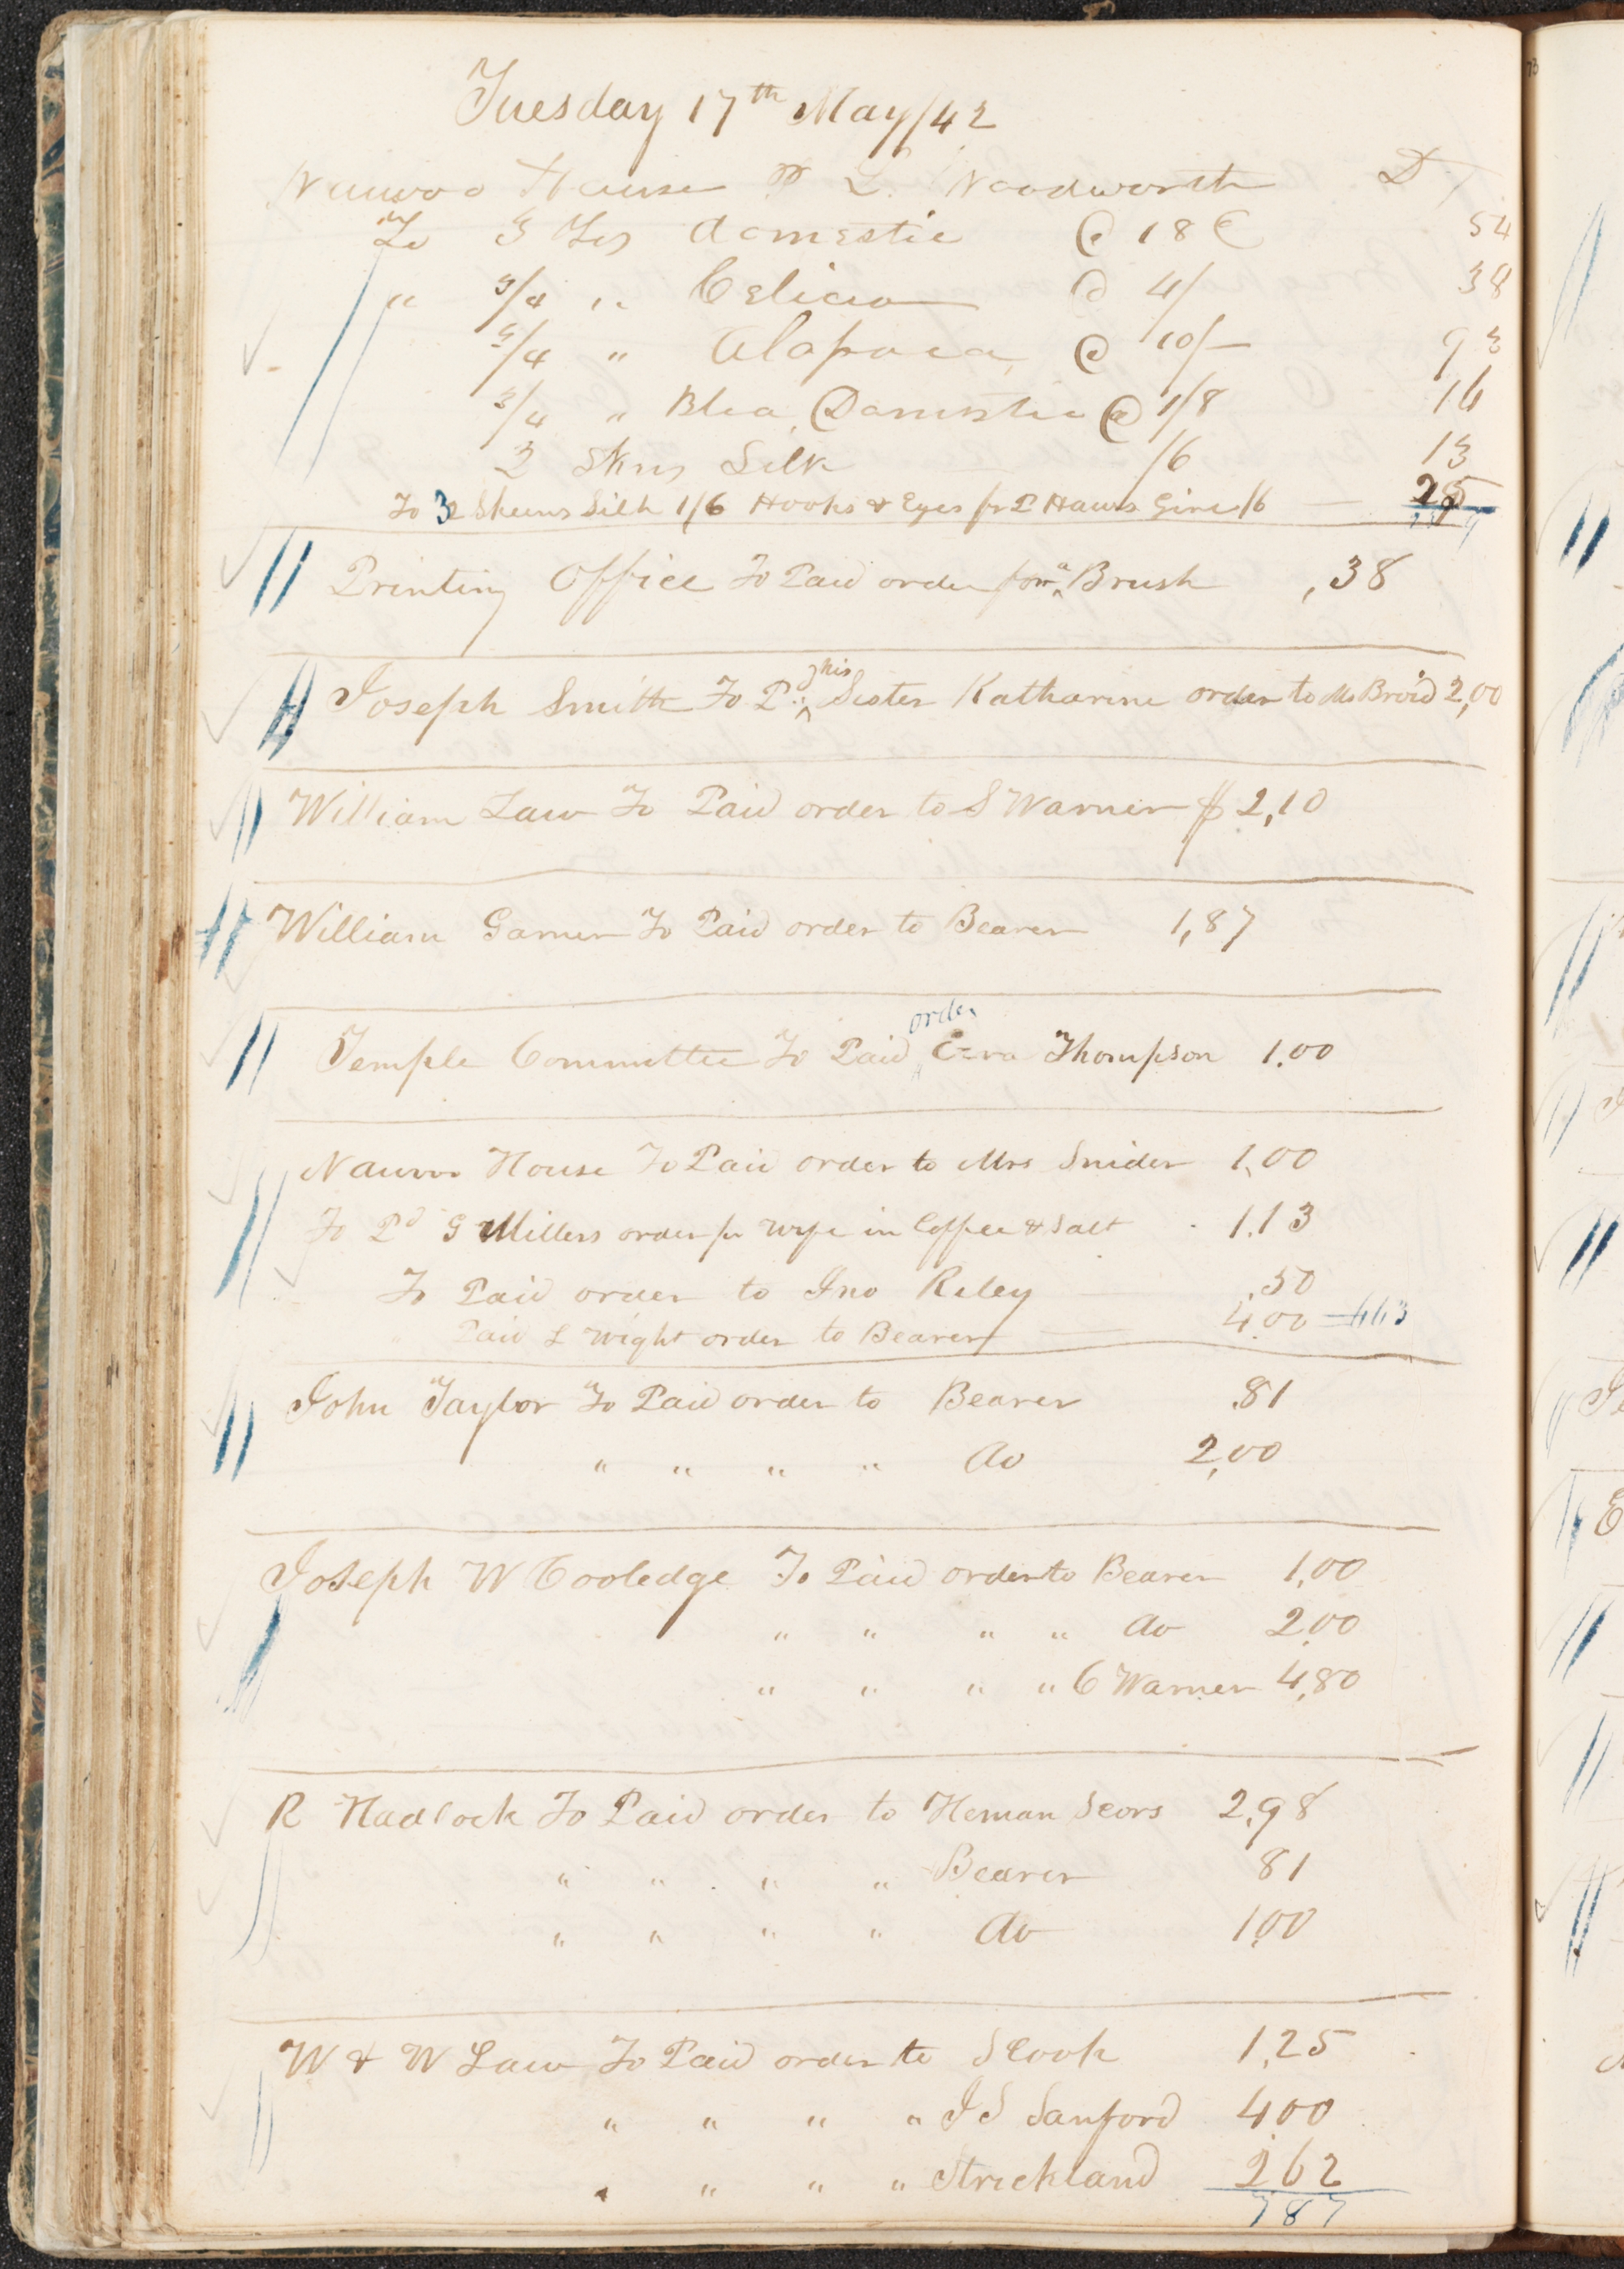 Tuesday 17th May/42
Nauvoo House Pr L. Woodworth Dr
To 3 Yds domestic @ 18 C 54
" 3/4 " Celicia @ 4/ 38
3/4 " Alapaca @ 10/— 93
3/4 " Blea. Domestic @ 1/8 16
2 Skns Silk /6 13
To 3 Skeins Silk 1/6 Hooks & Eyes pr P Haws Girl /6 — 25
Printing Office To Paid order for a Brush ,38
Joseph Smith To Pd his Sister Katharine order to Mc Broid 2,00
William Law To Paid order to S Warner $ 2,10
William Garner To Paid order to Bearer 1,87
Temple Committee To Paid order Ezra Thompson 1.00
Nauvoo House To Paid order to Mrs Snider 1,00
To Pd G Millers order pr wife in Coffee & Salt 1.13
To Paid order to Jno Reley .50
" Paid L Wight order to Bearer — 4.00 — 663
John Taylor To Paid order to Bearer .81
" " " " do 2,00
Joseph W Cooledge To Paid order to Bearer 1,00
" " " " do 2.00
" " " " C Warner 4,80
R Hadlock To Paid order to Heman Sears 2,98
" " " " Bearer 81
" " " " do 1,00
W & W Law To Paid order to S Cook 1,25
" " " " J S Sanford 4.00
" " " " Strickland 2.62
787